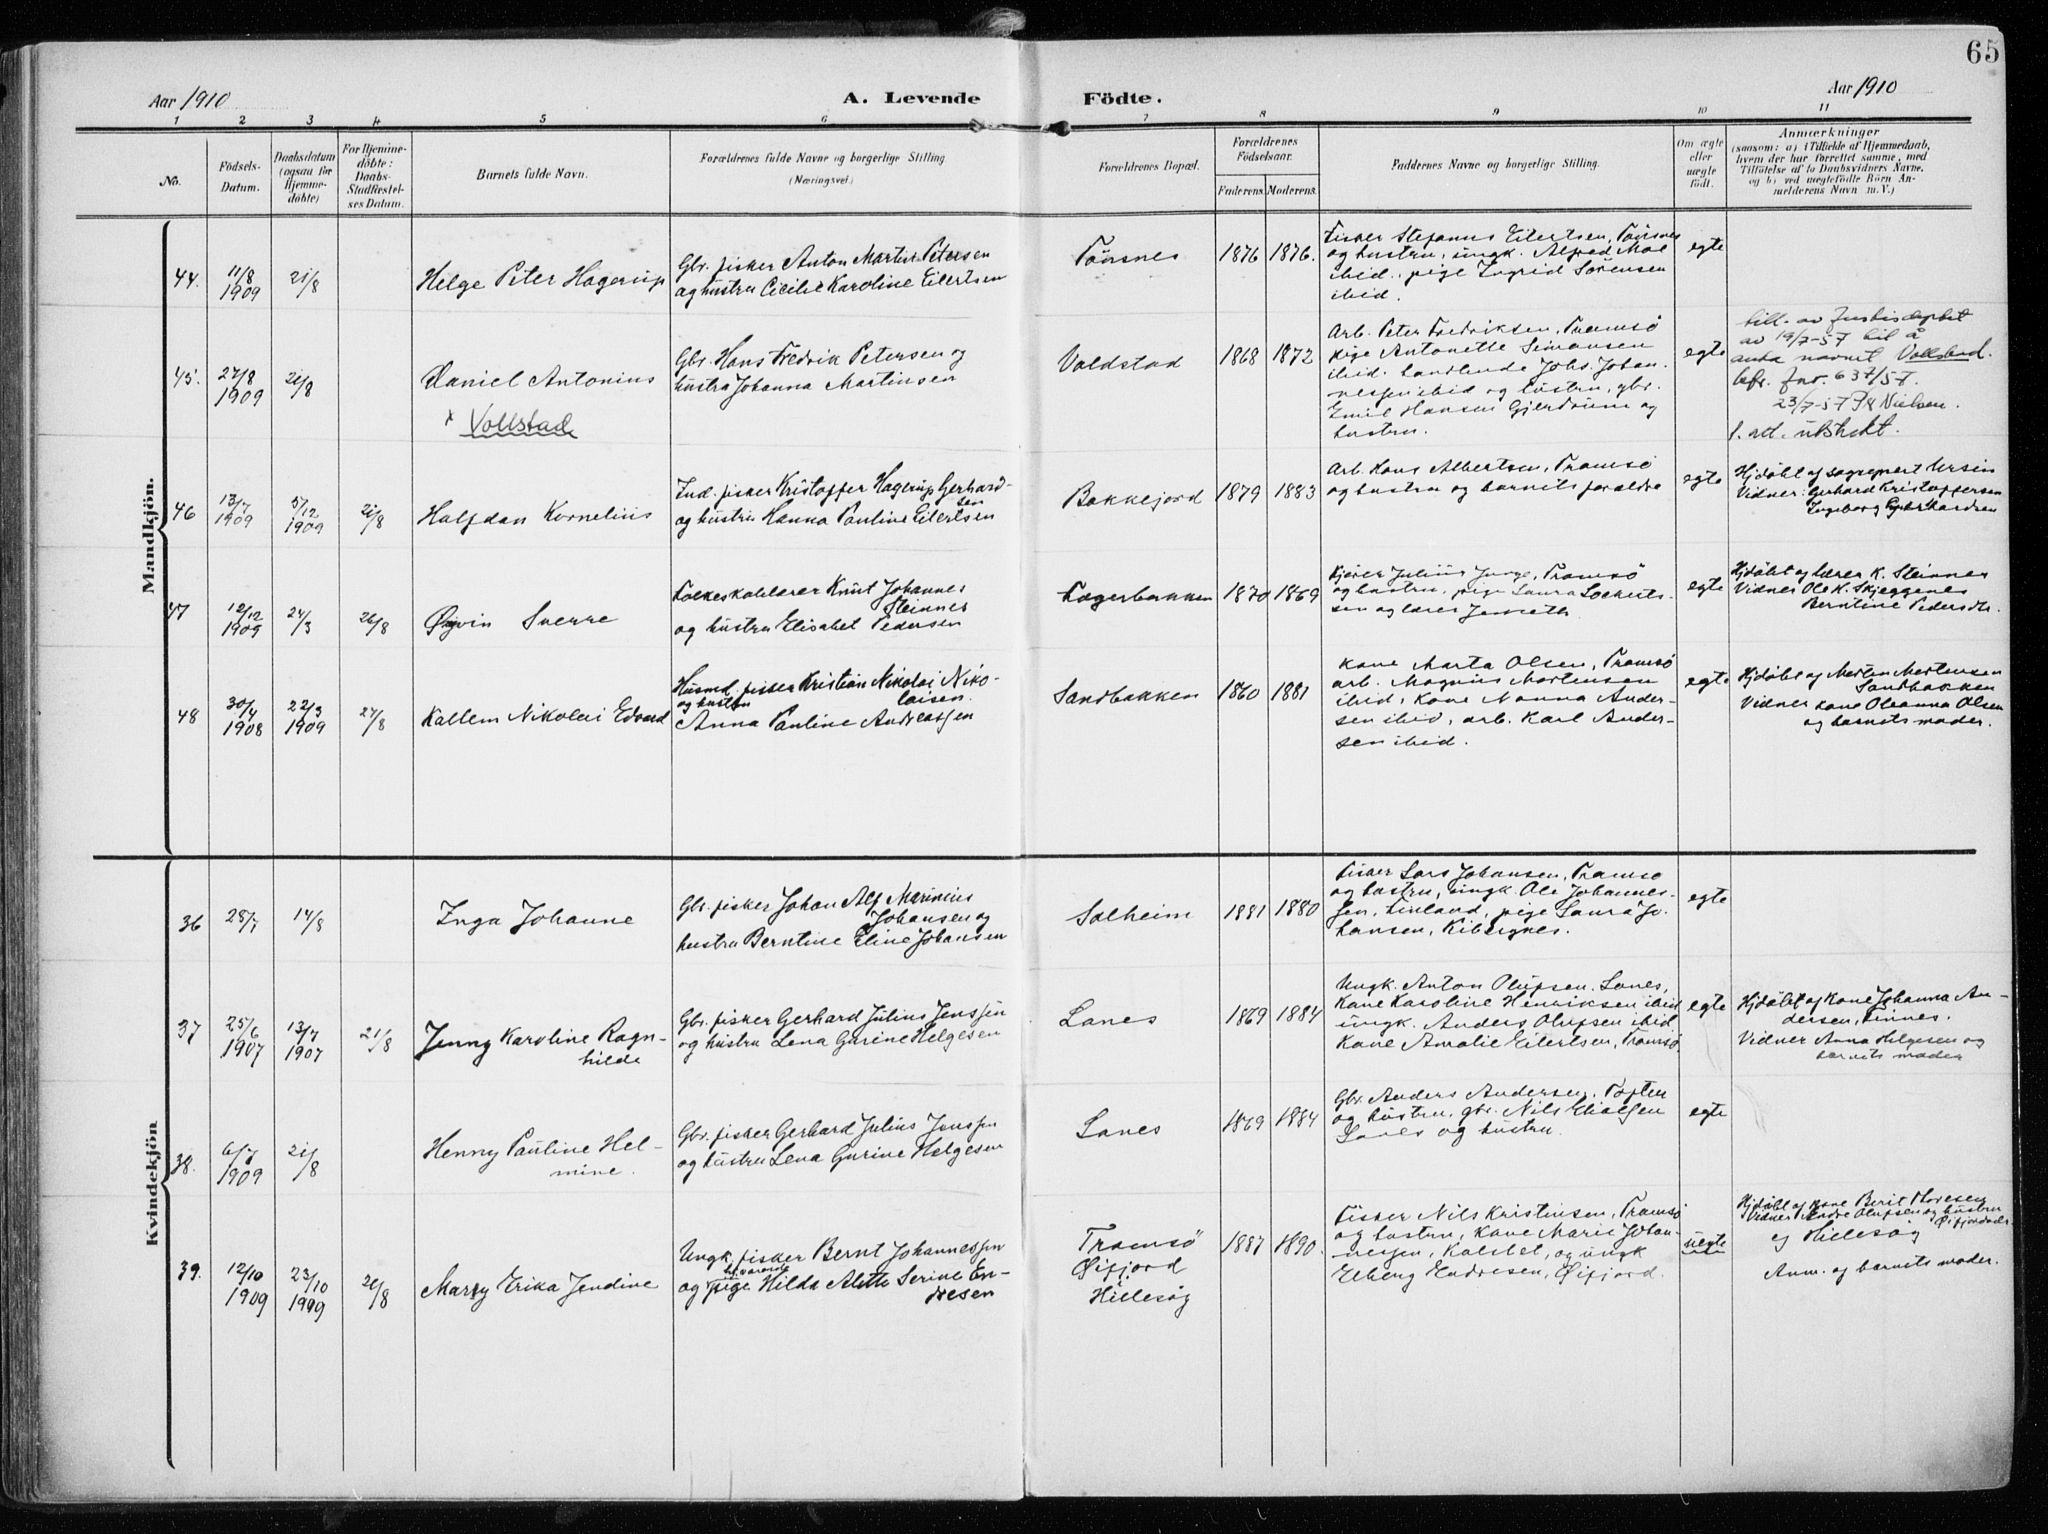 65
Aar 1910
A. Levende Födte.
Aar 1910
1 2 3 4 5 6 7 8 9 10 11
No.
Födsels-Datum.
Daabsdatum (ogsaa for Hjemme-döbte)
For Hjemme-döbte: Daabs-Stadfæstel-ses Datum.
Barnets fulde Navn.
Forældrenes fulde Navne og borgerlige Stilling
(Næringsvei.)
Forældrenes Bopæl.
Forældrenes Födselsaar.
Faderens. Moderens.
Faddernes Navne og borgerlige Stilling.
Om ægte eller uægte födt.
Anmærkninger
(saasom: a) i Tilfælde af Hjemmedaab,
hvem der har forrettet samme, med
Tilföielse af to Daabsvidners Navne,
og b) ved uægtefödte Börn An-
melderens Navn m. V.)
Mandkjön.
44. 11/8 1909 21/8
Helge Peter Hagerup
Gbr. fisker Anton Martin Petersen
og hustru Cecilie Karoline Eilertsen
Tönsnes 1876 1876.
Fisker Stefanus Eilertsen, Tönsnes
og hustru, ungk. Alfred Moe
ibid., pige Ingrid Sörensen
ibid.
egte
45. 27/8 1909 21/8
Daniel Antonius
x Vollstad
Gbr. Hans Fredrik Petersen og
hustru Johanna Martinsen
Voldstad 1868 1872
Arb. Peter Fredriksen, Tromsö
pige Antonette Simonsen
ibid. handlende Johs. Johan-
nessen ibid og hustru, gbr.
Emil Hansen Gjerdrum og
hustru.
egte
till. av Justisdeptet
av 19/7-57 til å
anta navnet Vollstad.
befr. Jnr. 637/57.
23/7-57 Nielsen.
f. att. utstekt.
46 13/7 1909 5/12 1909 21/8
Halfdan Kornelius
Ind. fisker Kristoffer Hagerup Gerhard-
sen
og hustru Hanna Pauline Eilertsen
Bakkejord 1879 1883
Arb. Hans Albertsen, Tromsö
og hustru og barnets forældre
egte
Hjdöbt af sogneprest Ursin
Vidner: Gerhard Kristoffersen
Ingeborg Gerhardsen
47 12/12 1909 24/3 26/8
Øivin Sverre
Folkeskolelærer Knut Johannes
Steinnes
og hustru Elisabet Pedersen
Fagerbakken 1870 1869
Kjörer Julius Junge, Tromsö
og hustru, pige Laura Lockerts-
sen og lærer Jenseth
egte
Hjdöbt af lærer K. Steinnes
Vidner Ole K. Skjeggenes
Berntine Pedersdtr.
48 30/4 1908 22/3 1909 27/8
Kallem Nikolai Edvard
Husmd. fisker Kristian Nikolai Niko-
og hustru laisen.
Anna Pauline Andreassen
Sandbakken 1860 1881
Kone Marta Olsen, Tromsö
arb. Magnus Mortensen
ibid, Kone Nanna Ander-
sen ibid, arb. Karl Ander-
sen ibid.
egte
Hjdöbt af Morten Mortensen
Sandbakken
Vidner kone Oleanna Olsen
og barnets moder.
Kvindekjön
36 28/7 14/8
Inga Johanne
Gbr. fisker Johan Alf Marinius
Johansen og
hustru Berntine Eline Johansen
Solheim 1881 1880
Fisker Lars Johansen, Tromsö
og hustru, ungk. Ole Johannes-
sen, Finland, pige Laura Jo-
hansen, Kibergnes.
egte
37 25/6 1907 13/7 1907 21/8
Jenny Karoline Ragn-
hilde
Gbr. fisker Gerhard Julius Jenssen
og hustru Lena Gurine Helgesen
Lanes 1869 1884
Ungk. Anton Olufsen. Lanes,
Kone Karoline Henriksen ibid
ungk. Anders Olufsen ibid
Kone Amalie Eilertsen, Tromsö
egte
Hjdöbt af Kone Johanna An-
dersen, Finnes.
Vidner Anna Helgesen og
barnets moder
38. 6/7 1909 21/8
Henny Pauline Hel-
mine.
Gbr. fisker Gerhard Julius Jenssen
og hustru Lena Gurine Helgesen
Lanes 1869 1884
Gbr. Anders Andersen, Toften
og hustru, gbr. Nils Eliassen
Lanes og hustru.
egte
39. 12/10 1909 23/10 1909 26/8
Marry Erika Jendine
Ungk. fisker Bernt Johannessen
og pige Hilda Alette Serine En-
dresen
Tromsö
Øifjord
Hillesøg
1887 1890.
Fisker Nils Kristensen, Tromsö
og hustru, Kone Marie Johan-
nessen, Kalslet, og ungk
Elberg Endresen, Øifjord.
uegte
Hjdöbt af Kone Berit Thoresen
Vidner Andre Olufsen og hustru
af Hillesøg
Anm. af barnets moder.